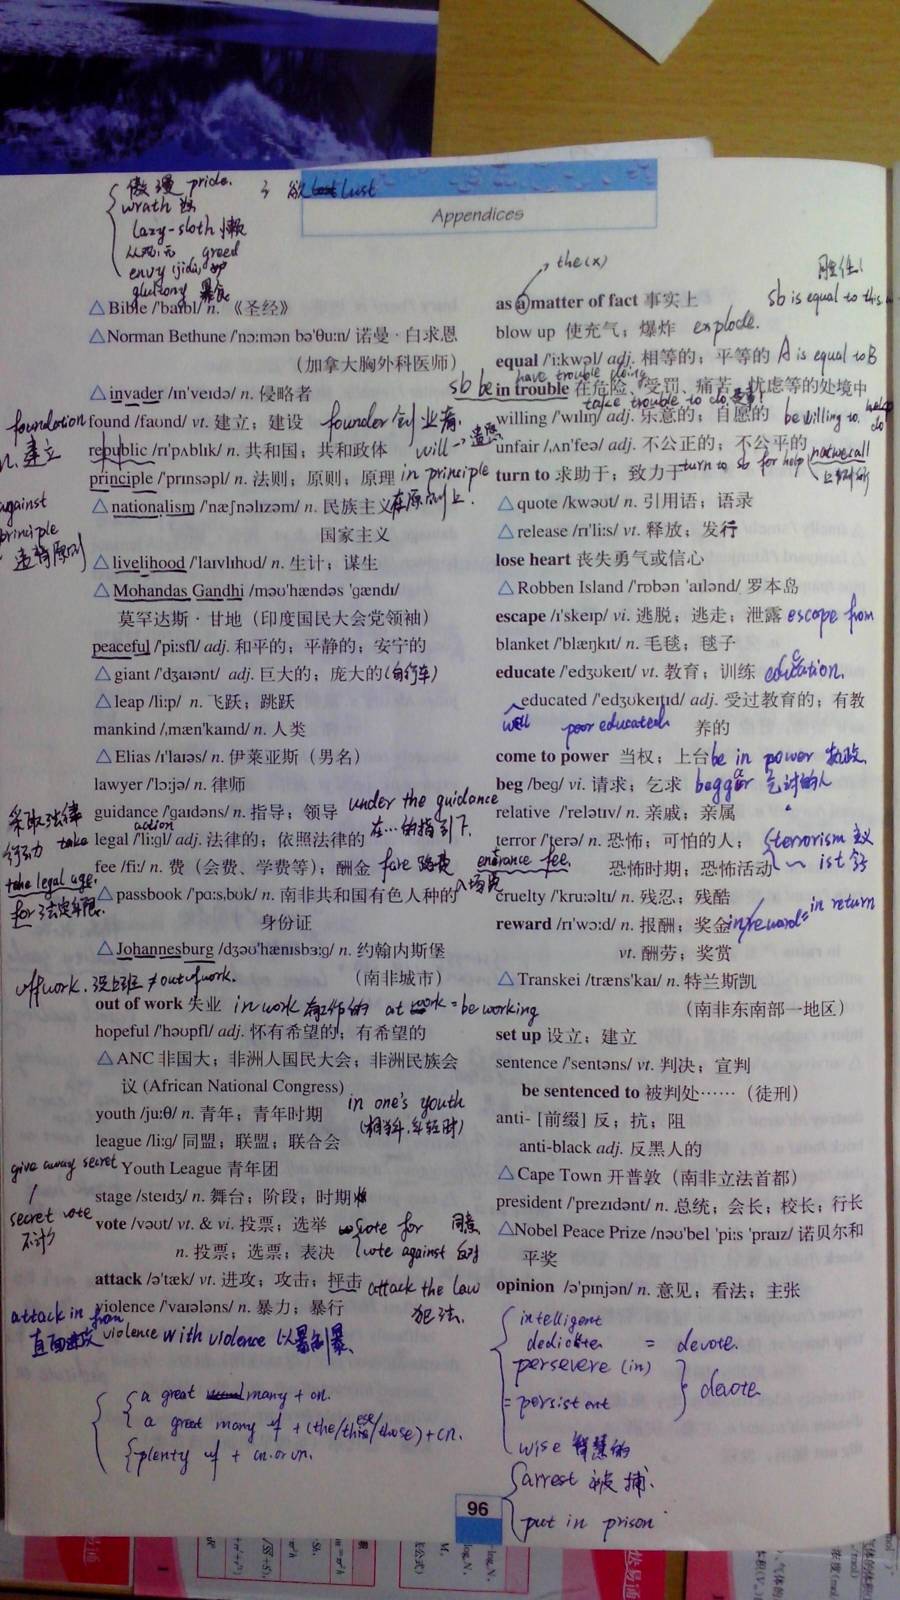 傲慢 pride.
wrath 怒
lazy-sloth 懒
greed
envy
gluttony 暴食
欲 lust
Appendices
△Bible /'baɪbl/ n. 《圣经》
△Norman Bethune /'nɔ:mən bə'θu:n/ 诺曼·白求恩
（加拿大胸外科医师）
△invader /ɪn'veɪdə/ n. 侵略者
foundation
n. 建立
found /faʊnd/ vt. 建立；建设 founder 创业者
republic /rɪ'pʌblɪk/ n. 共和国；共和政体
principle /'prɪnsəpl/ n. 法则；原则；原理 in principle
在原则上
against
principle
违背原则
△nationalism /'næʃnəlɪzəm/ n. 民族主义；
国家主义
△livelihood /'laɪvlɪhʊd/ n. 生计；谋生
△Mohandas Gandhi /məʊ'hændəs 'gændɪ/
莫罕达斯·甘地（印度国民大会党领袖）
peaceful /'pi:sfl/ adj. 和平的；平静的；安宁的
△giant /'dʒaɪənt/ adj. 巨大的；庞大的 (自行车)
△leap /li:p/ n. 飞跃；跳跃
mankind /,mæn'kaɪnd/ n. 人类
△Elias /ɪ'laɪəs/ n. 伊莱亚斯（男名）
lawyer /'lɔjə/ n. 律师
guidance /'gaɪdəns/ n. 指导；领导 under the guidance
在…的指引下.
采取法律
行动 take
legal /'li:gl/ adj. 法律的；依照法律的
action
fee /fi:/ n. 费（会费、学费等）；酬金 fare 路费 entrance fee.
入场费
take legal age.
for 法定年限.
△passbook /'pɑ:s,bʊk/ n. 南非共和国有色人种的
身份证
△Johannesburg /dʒəʊ'hænɪsbɜ:g/ n. 约翰内斯堡
（南非城市）
off work. 没上班 ≠ out of work.
out of work 失业 in work 有工作的 at work = be working
hopeful /'həʊpfl/ adj. 怀有希望的；有希望的
△ANC 非国大；非洲人国民大会；非洲民族会
议 (African National Congress)
youth /ju:θ/ n. 青年；青年时期 in one's youth
league /li:g/ 同盟；联盟；联合会
give away secret
Youth League 青年团
stage /steɪdʒ/ n. 舞台；阶段；时期
secret vote
vote /vəʊt/ vt. & vi. 投票；选举 vote for 同意
n. 投票；选票；表决 vote against 反对
attack /ə'tæk/ vt. 进攻；攻击；抨击 attack the law
犯法.
violence /'vaɪələns/ n. 暴力；暴行
attack in from
violence with violence 以暴制暴.
a great many + cn.
a great many of + (the/these/those) + cn.
plenty of + cn. or un.
the(x)
as a matter of fact 事实上
胜任!
sb is equal to this
blow up 使充气；爆炸 explode.
equal /'i:kwəl/ adj. 相等的；平等的 A is equal to B
have trouble doing
sb be in trouble 在危险、受罚、痛苦、忧虑等的处境中
take trouble to do
willing /'wɪlɪŋ/ adj. 乐意的；自愿的 be willing to. help
do
will → 遗愿
unfair /,ʌn'feə/ adj. 不公正的；不公平的
turn to 求助于；致力于 turn to sb for help
△quote /kwəʊt/ n. 引用语；语录
△release /rɪ'li:s/ vt. 释放；发行
lose heart 丧失勇气或信心
△Robben Island /'rɒbən 'aɪlənd/ 罗本岛
escape /ɪ'skeɪp/ vi. 逃脱；逃走；泄露 escape from
blanket /'blæŋkɪt/ n. 毛毯；毯子
educate /'edʒʊkeɪt/ vt. 教育；训练 education.
educated /'edʒʊkeɪtɪd/ adj. 受过教育的；有教
养的
well poor educated
come to power 当权；上台 be in power 执政
beg /beg/ vi. 请求；乞求 beggar 乞讨的人
relative /'relətɪv/ n. 亲戚；亲属
terror /'terə/ n. 恐怖；可怕的人； terrorism 主义
恐怖时期；恐怖活动 ~ ist 分子
cruelty /'kru:əltɪ/ n. 残忍；残酷
reward /rɪ'wɔ:d/ n. 报酬；奖金 in reward = in return
vt. 酬劳；奖赏
△Transkei /træns'kaɪ/ n. 特兰斯凯
（南非东南部一地区）
set up 设立；建立
sentence /'sentəns/ vt. 判决；宣判
be sentenced to 被判处……（徒刑）
anti- [前缀] 反；抗；阻
anti-black adj. 反黑人的
△Cape Town 开普敦（南非立法首都）
president /'prezɪdənt/ n. 总统；会长；校长；行长
△Nobel Peace Prize /nəʊ'bel 'pi:s 'praɪz/ 诺贝尔和
平奖
opinion /ə'pɪnjən/ n. 意见；看法；主张
intelligent
dedicate = devote.
persevere (in)
= persistent
devote
wise 智慧的
arrest 被捕.
put in prison
96